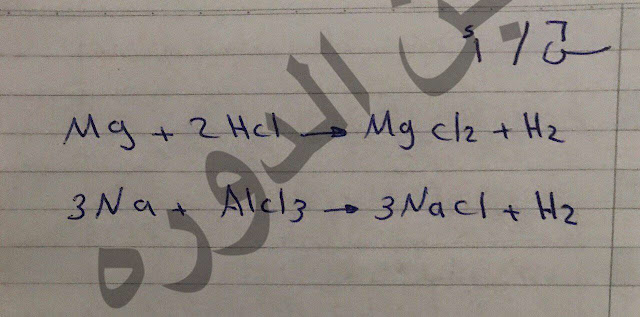 Mg + 2 Hcl → Mg cl2 + H2
3Na + Alcl3 → 3Nacl + H2
الدوره